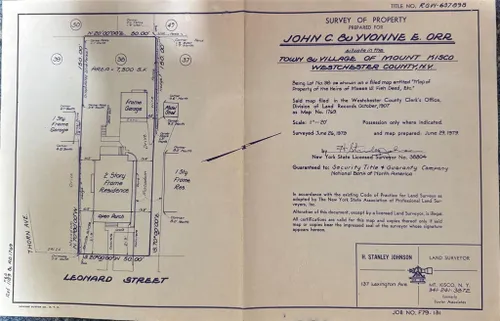 TITLE NO.
SURVEY OF PROPERTY
PREPARED FOR
JOHN C. & YVONNE E. ORR
situate in the
TOWN & VILLAGE OF MOUNT KISCO
WESTCHESTER COUNTY, N.Y.
Being Lot No. 38 as shown on a filed map entitled "Map of
Property of the Heirs of Moses W. Fish Dead, Etc."
Said map filed in the Westchester County Clerk's Office,
Division of Land Records October, 1907
as Map No. 1769
Scale: 1"=20' Possession only where indicated.
Surveyed June 26, 1979 and map prepared: June 29, 1979
by
New York State Licensed Surveyor No. 36804
Guaranteed to: Security Title & Guaranty Company
National Bank of North America
In accordance with the existing Code of Practice for Land Surveys as
adopted by The New York State Association of Professional Land Sur-
veyors, Inc.
Alteration of this document, except by a Licensed Land Surveyor, is illegal.
All certifications are valid for this map and copies thereof only if said
map or copies bear the impressed seal of the surveyor whose signature
appears hereon.
H. STANLEY JOHNSON
LAND SURVEYOR
137 Lexington Ave.
MT. KISCO, N. Y.
941-241-3872
formerly
JOB NO. F79-181
50
47
39
38
37
50.00'
150.00'
AREA = 7,500 S.F.
Frame
Garage
Metal
Shed
1 Sty
Frame
Garage
2 Story
Frame
Residence
1 Sty
Frame
Res
Open Porch
50.00'
THORN AVE.
LEONARD STREET